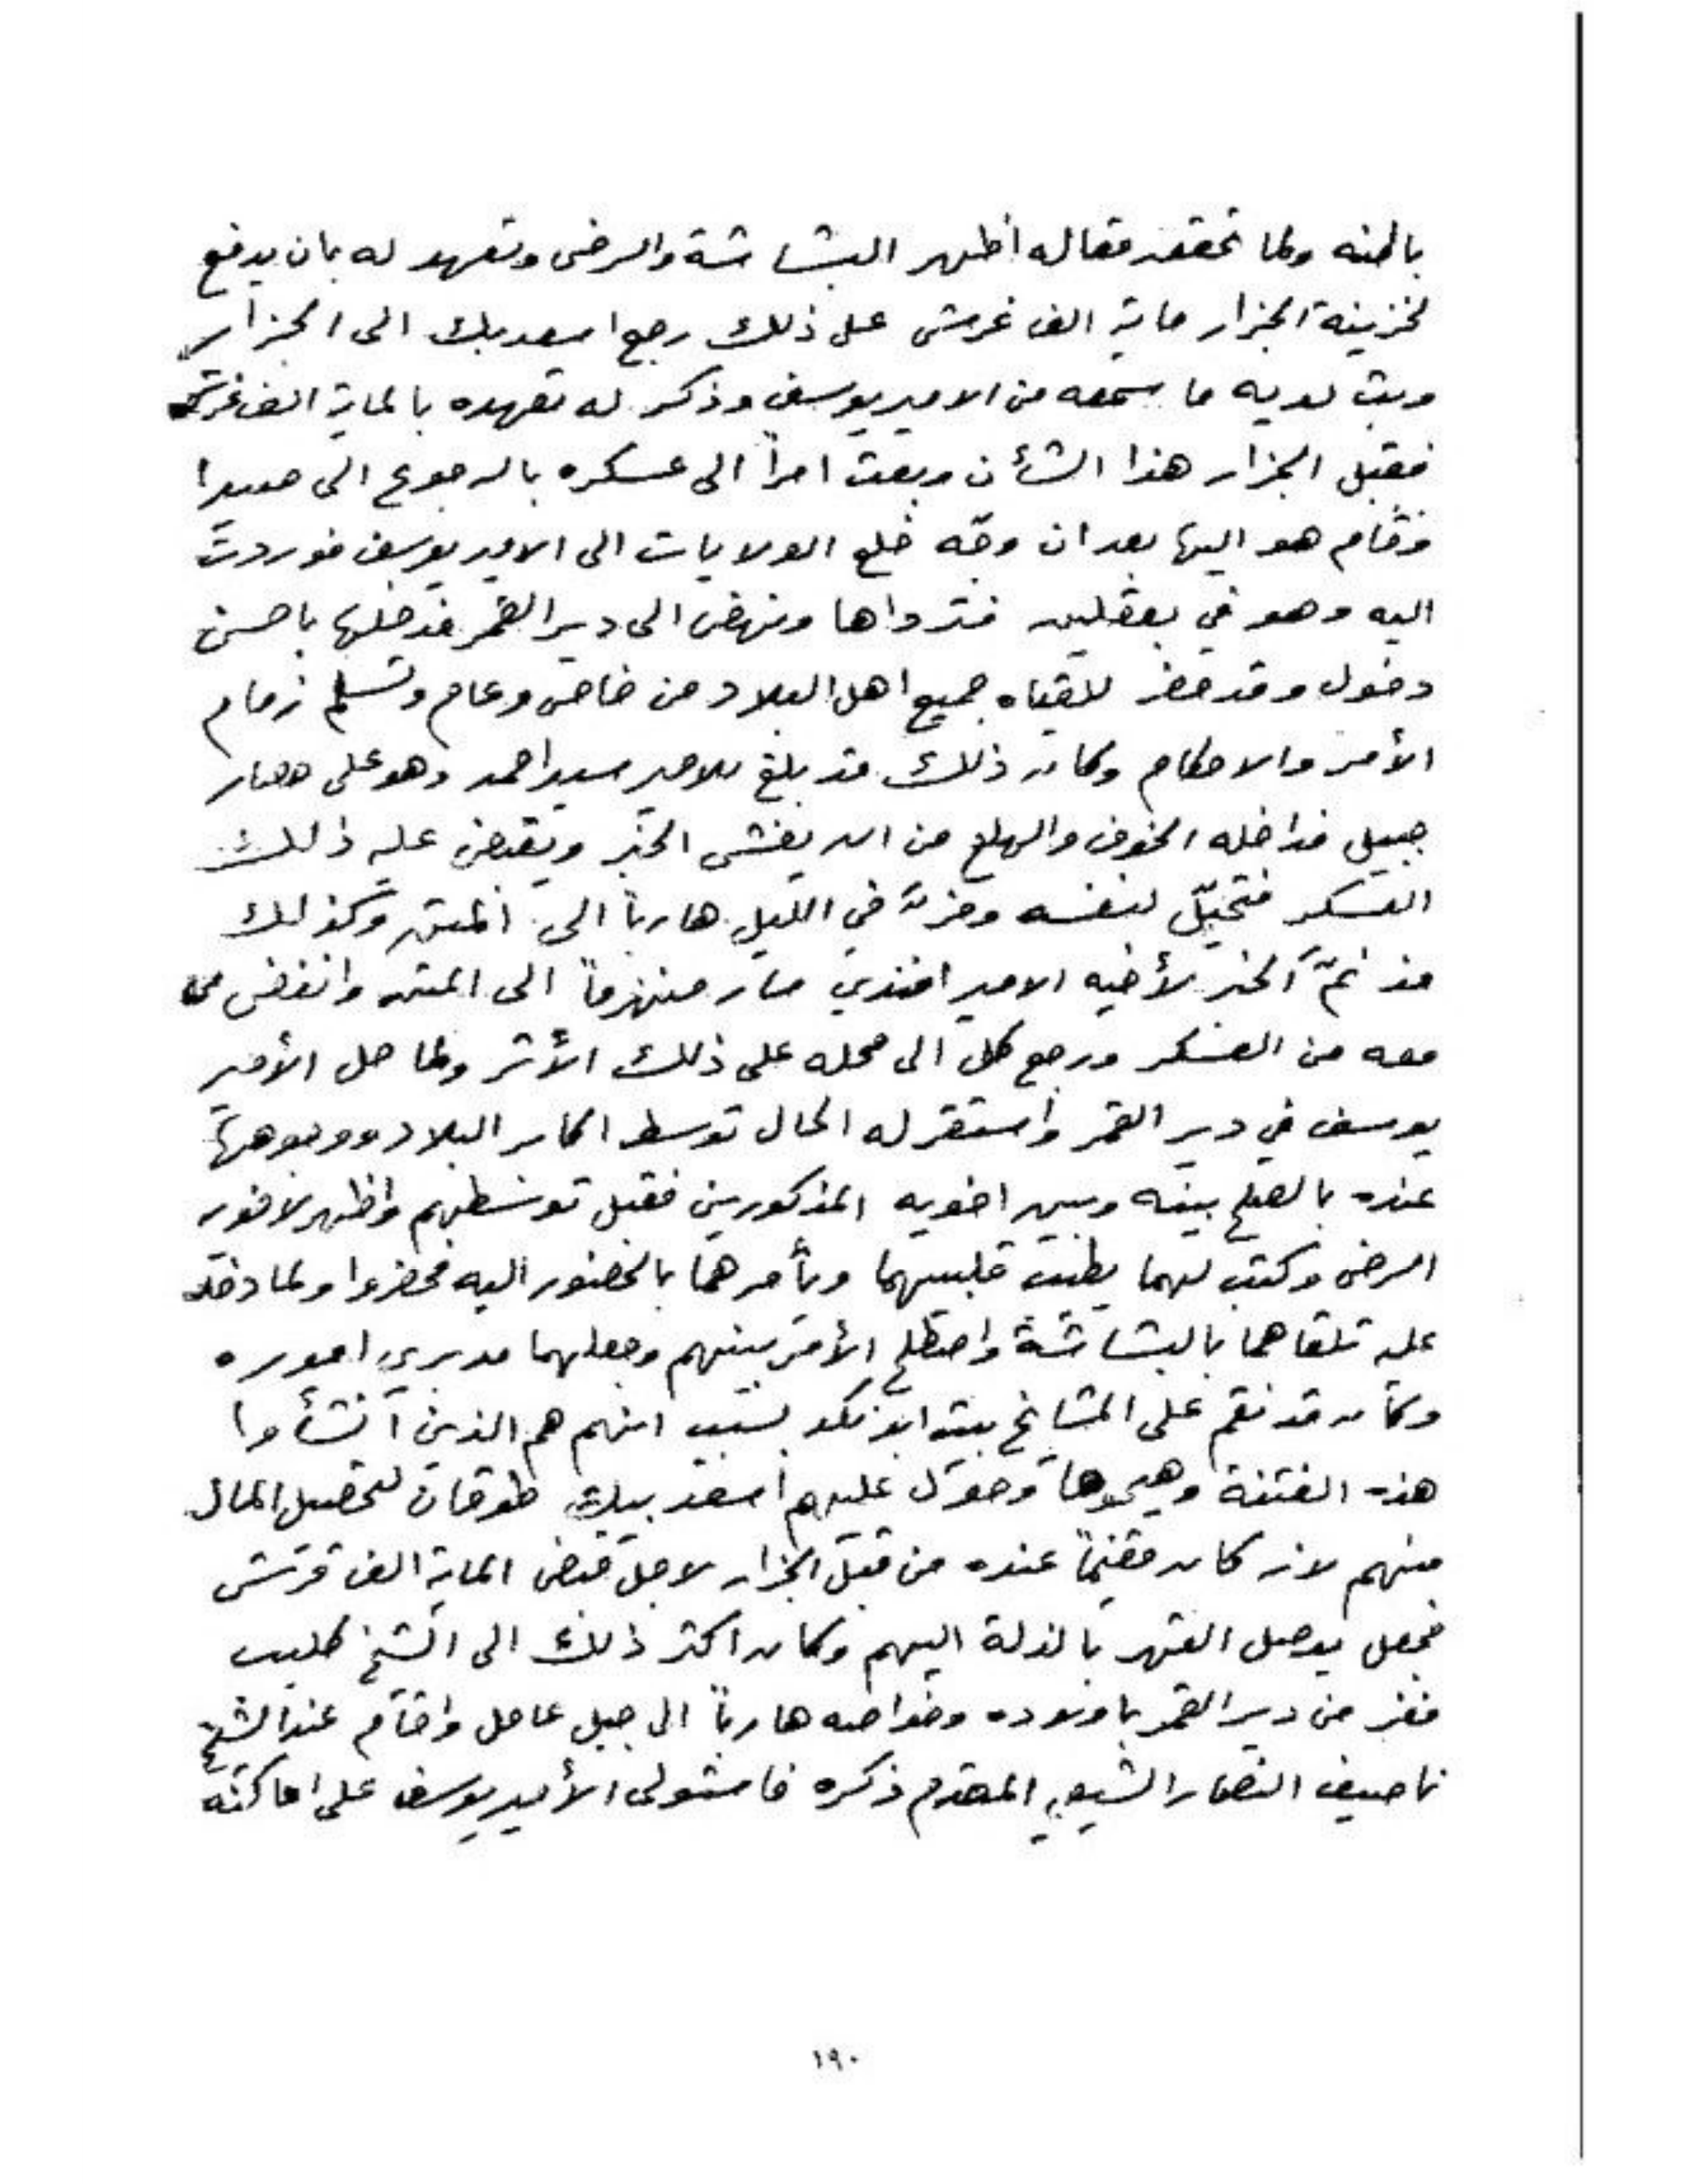 باطنه ولما تحقق مقاله اظهر البشاشة والرضى وتعهد له بان يدفع
لخزينة الجزار ماية الف غرش على ذلك رجع اسعد بك الى الجزار
وبث لديه ما سمعه من الامير يوسف وذكر له تعهده بالماية الف غرش
فقبل الجزار هذا الشأن وبعث امراً الى عسكره بالرجوع الى صيدا
وقام هو اليها بعد ان وجّه خلع الولايات الى الامير يوسف فوردت
اليه وهو في بعقلين فتردأها ونهض الى دير القمر فدخلها باحسن
دخول وقد حضر للقياه جميع اهل البلاد من خاص وعام وتسلم زمام
الأمر والاحكام وكان ذلك قد بلغ للامير سيد احمد وهو على حصار
جبيل فداخله الخوف والهلع من ان يفشى الخبر ويقبض عليه ذلك
العسكر فتحيّل لنفسه وفرّ في الليل هارباً الى المتن وكذلك
مذ نمّ الخبر لأخيه الامير افندي سار منهزماً الى المتن وانفض من
معه من العسكر ورجع كل الى محله على ذلك الأثر ولما حل الأمير
يوسف في دير القمر واستقر له الحال توسط اكابر البلاد ووجوهها
عنده بالصلح بينه وبين اخويه المذكورين فقبل توسطهم واظهر لافور
الرضى وكتب لهما يطيب قلبيهما ويأمرهما بالحضور اليه فحضروا ولما دخلا
عليه تلقاهما بالبشاشة واصطلح الأمر بينهم وجعلهما مدبري اموره
وكان قد نقم على المشايخ بيت ابو نكد بسبب انهم هم الذين انشأوا
هذه الفتنة وهيجوها وحوّل عليهم اسعد بيك طوقان لتحصيل المال
منهم لانه كان مقيماً عنده من قبل الجزار لاجل قبض الماية الف قرش
فجعل يوصل القهر بالذلة اليهم وكان اكثر ذلك الى الشيخ كليب
ففر من دير القمر باولاده وخواصه هارباً الى جبل عامل واقام عند الشيخ
ناصيف النصار الشيعي المقدم ذكره فاستولى الأمير يوسف على اماكنه
١٩٠